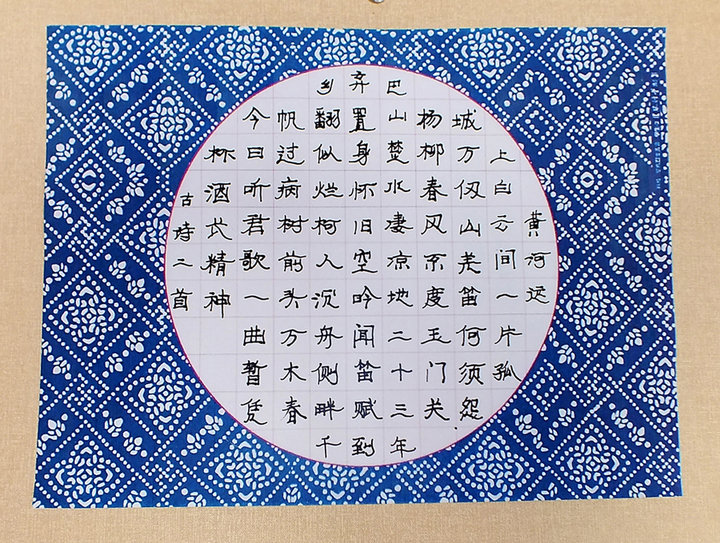 黄河远
上白云间一片孤
城万仞山羌笛何须怨
杨柳春风不度玉门关
巴山楚水凄凉地二十三年
弃置身怀旧空吟闻笛赋到
乡翻似烂柯人沉舟侧畔千
帆过病树前头万木春
今日听君歌一曲暂凭
杯酒长精神
古诗二首